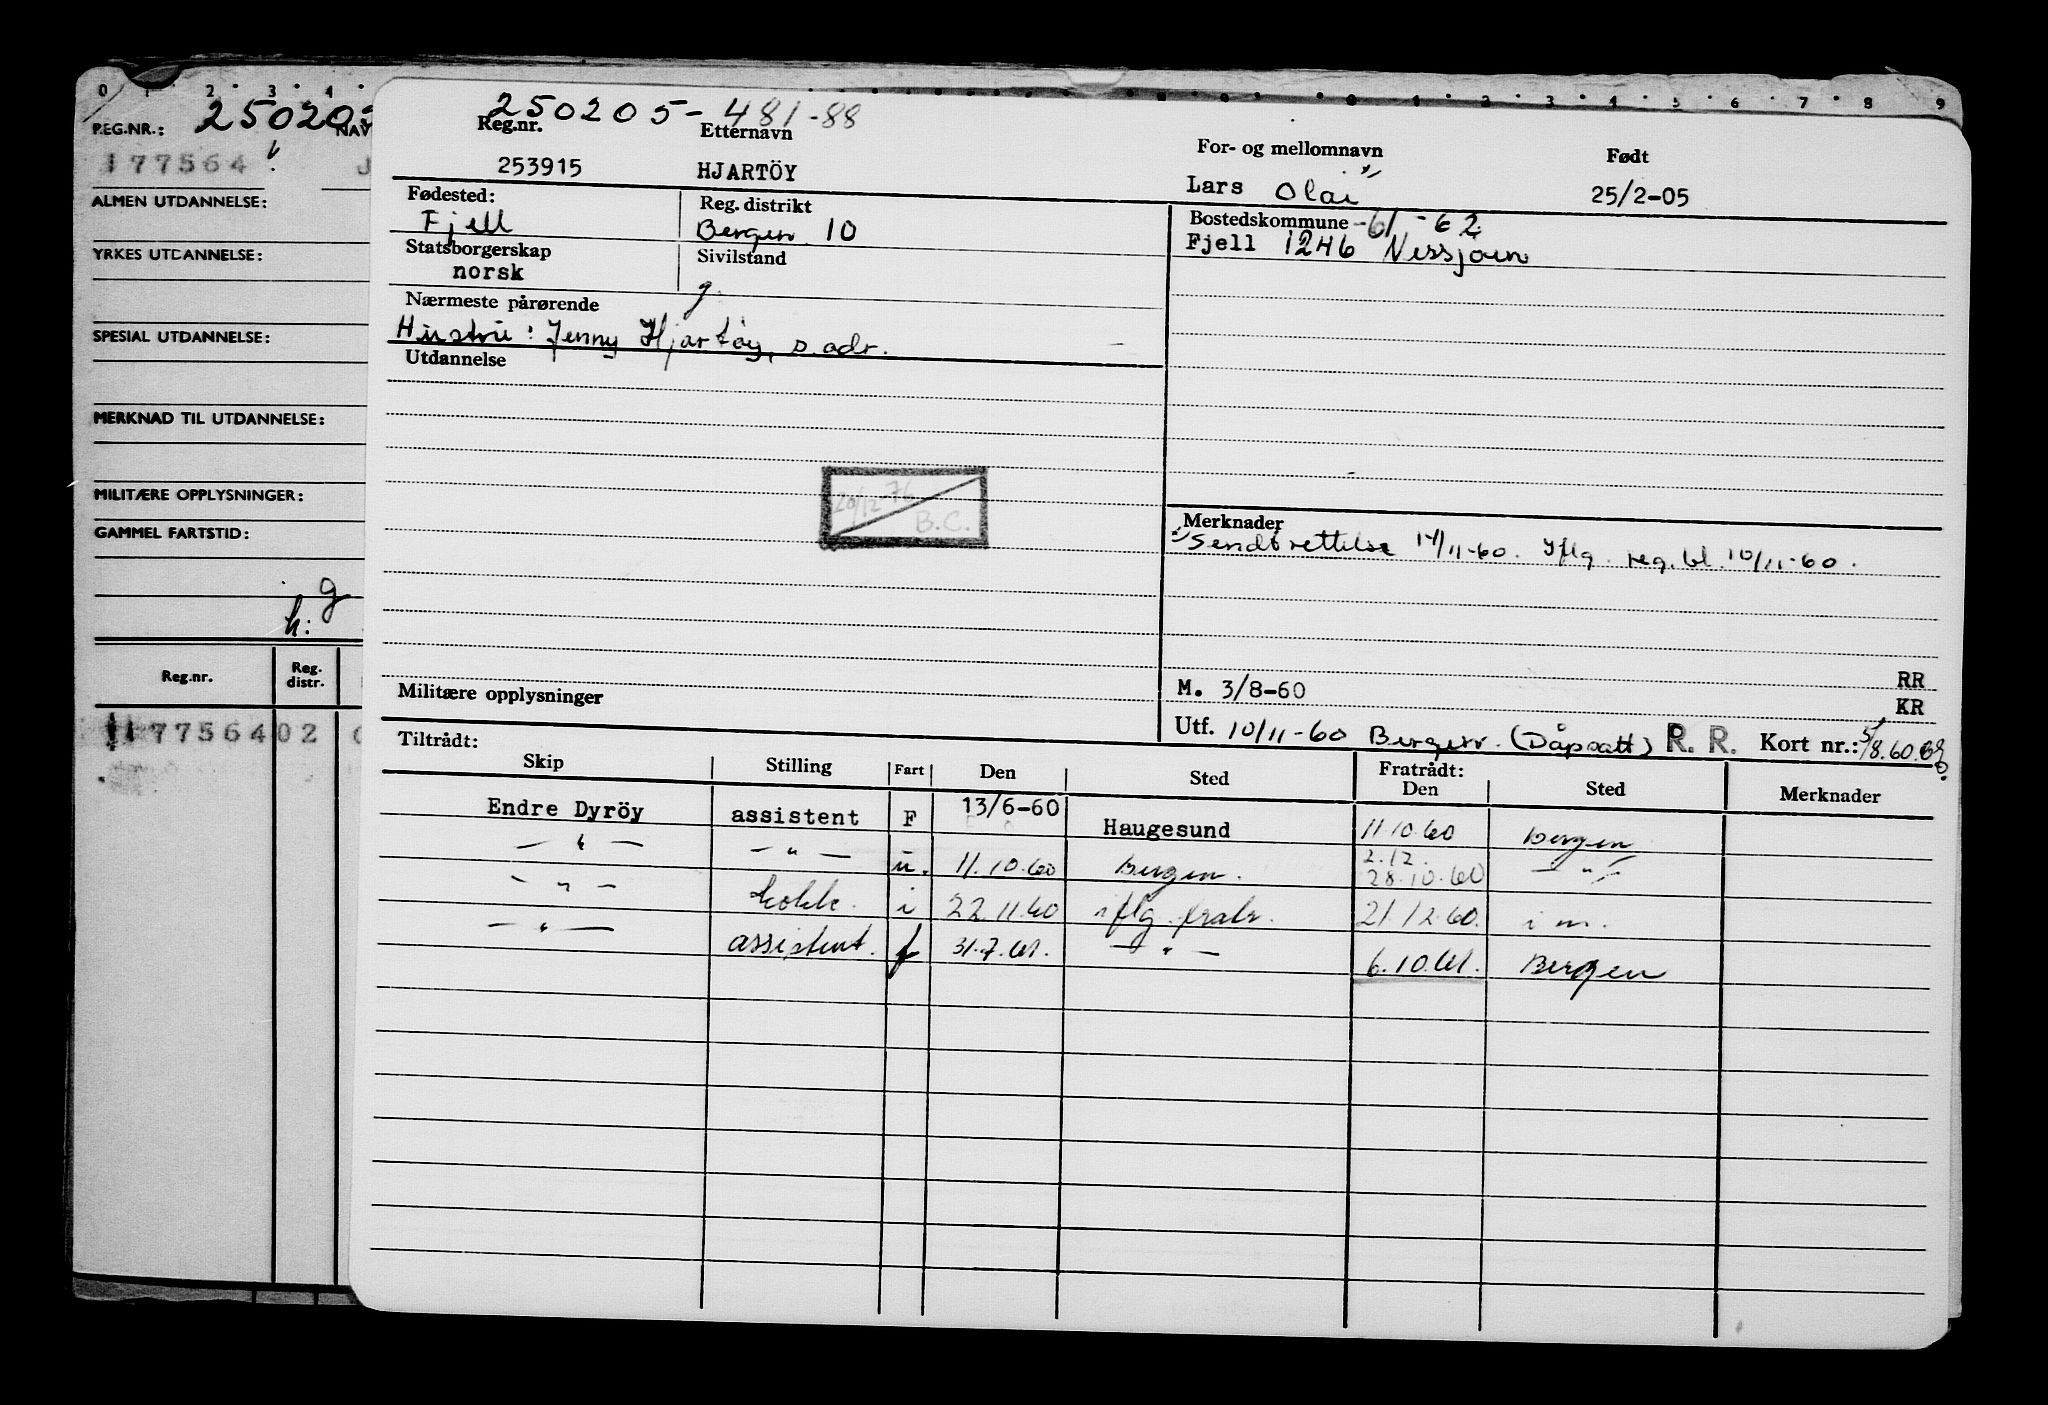 0 1 2 3 4
REG.NR.: 250205
NAV
177564 J
ALMEN UTDANNELSE:
YRKES UTDANNELSE:
SPESIAL UTDANNELSE:
MERKNAD TIL UTDANNELSE:
MILITÆRE OPPLYSNINGER:
GAMMEL FARTSTID:
g
h:
Reg.nr. Reg. distr.
177564 02
0 1 2 3 4 5 6 7 8 9
250205-481-88
Reg.nr. Etternavn For- og mellomnavn Født
253915 HJARTÖY Lars Olai 25/2-05
Fødested: Reg. distrikt Bostedskommune -61 -62
Fjell Bergen 10 Fjell 1246
Statsborgerskap Sivilstand
norsk g
Nærmeste pårørende
Hustru: Jenny Hjartöy, s.adr.
Utdannelse
20/12-76
B.C.
Merknader
Sendt rettelse 14/11-60. Iflg. reg.bl. 10/11-60.
Militære opplysninger
M. 3/8-60 RR
KR
Utf. 10/11-60 Bergen. (Dåpsatt) R. R. Kort nr.: 5/8.60.
Tiltrådt: Fratrådt:
Skip Stilling Fart Den Sted Den Sted Merknader
Endre Dyröy assistent F 13/6-60 Haugesund 11.10.60 Bergen
— " — — " — u. 11.10.60 Bergen. 2.12. 28.10.60 — " —
— " — kokk. i 22.11.60 iflg. fratr. 21.12.60. i m.
— " — assistent. f 31.7.61. — " — 6.10.61. Bergen